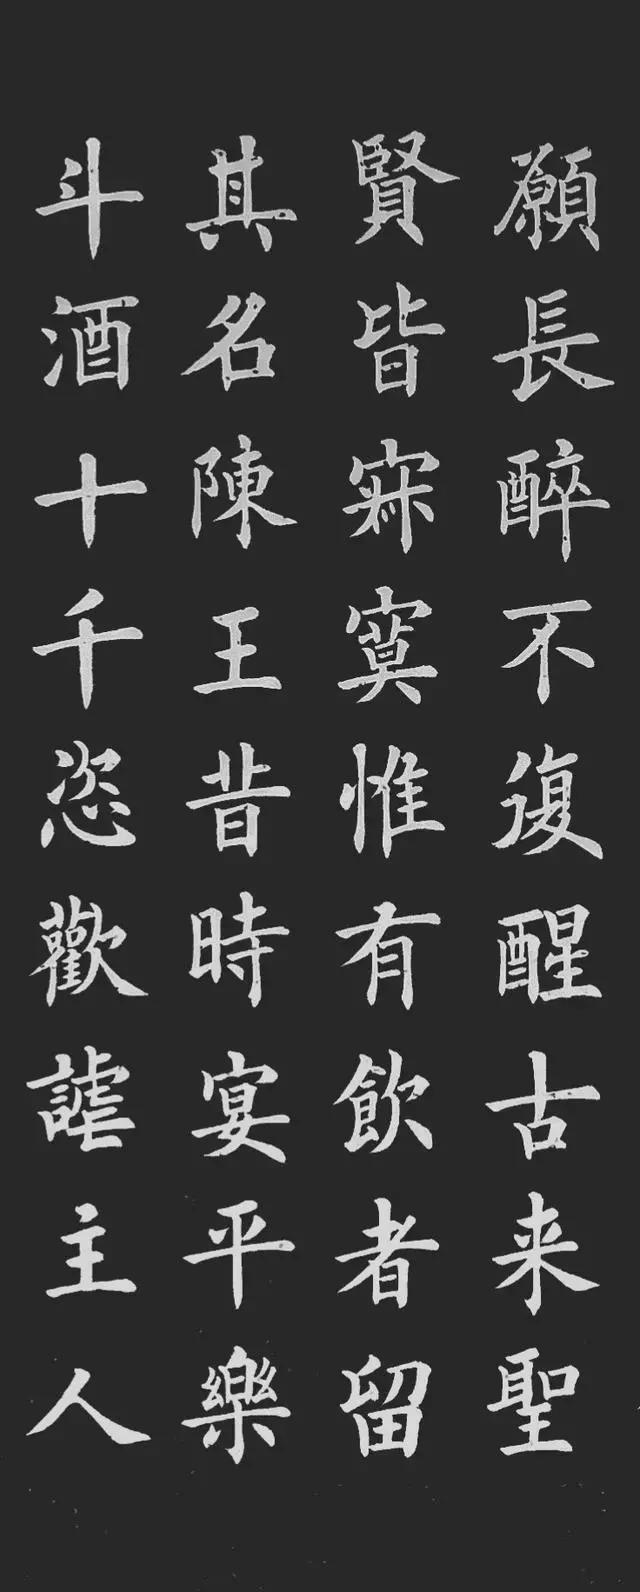 願長醉不復醒古来聖
賢皆寂寞惟有飲者留
其名陳王昔時宴平樂
斗酒十千恣歡謔主人